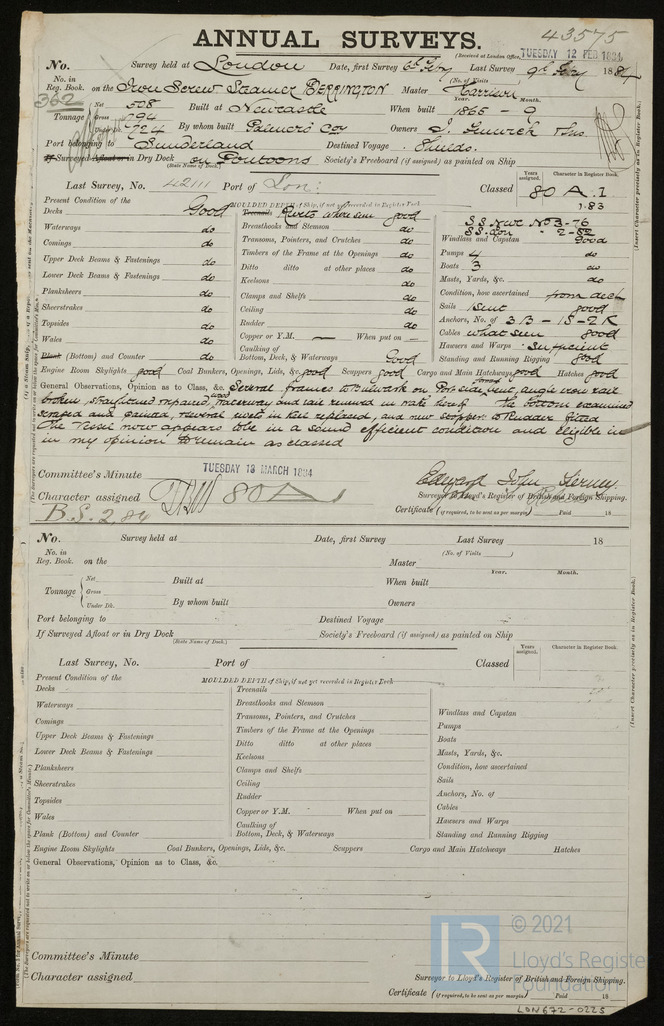 43575
ANNUAL SURVEYS.
(Received at London Office, TUESDAY 12 FEB 1884
No. Survey held at London Date, first Survey 6th Feby Last Survey 9th Feby 1884
(No. of Visits )
No. in Reg. Book. on the Iron Screw Steamer DERRINGTON Master Harrison
362
Year. Month.
Net 508 Built at Newcastle When built 1865 - 9
Tonnage Gross 794
Under Dk. 724 By whom built Palmers Coy Owners J. Fenwick & Sns
Port belonging to Sunderland Destined Voyage Shields.
If Surveyed Afloat or in Dry Dock on Pontoons Society's Freeboard (if assigned) as painted on Ship
(State Name of Dock.)
Years assigned. Character in Register Book.
Last Survey, No. 42111 Port of Lon: Classed 80 A.1
1.83
Present Condition of the MOULDED DEPTH of Ship, if not yet recorded in Register Book
Decks Good Treenails Rivets where seen good S.S. Nwc No 3-76
Waterways do Breasthooks and Stemson do S.S. Lon - 2-82
Comings do Transoms, Pointers, and Crutches do Windlass and Capstan Good
Upper Deck Beams & Fastenings do Timbers of the Frame at the Openings do Pumps 4 do
Lower Deck Beams & Fastenings do Ditto ditto at other places do Boats 3 do
Planksheers do Keelsons do Masts, Yards, &c. do
Sheerstrakes do Clamps and Shelfs do Condition, how ascertained from deck
Topsides do Ceiling do Sails 1 Suit good
Wales do Rudder do Anchors, No. of 3 B - 1 S - 2 K
Plank (Bottom) and Counter do Copper or Y.M. — When put on — Cables what seen good
Caulking of Bottom, Deck, & Waterways Good Hawsers and Warps Sufficient
Standing and Running Rigging good
Engine Room Skylights good Coal Bunkers, Openings, Lids, &c. good Scuppers good Cargo and Main Hatchways good Hatches good
General Observations, Opinion as to Class, &c. Several frames to bulwark on Port side bent, angle iron rail
broken, renewed in wake thereof. The bottom examined
scraped and painted, several rivets in Keel replaced, and new stopper to Rudder fitted
The Vessel now appears to be in a sound efficient condition and eligible in
in my opinion to remain as classed
Committee's Minute TUESDAY 18 MARCH 1884
Edward John Tierney
Character assigned 80 A 1
Surveyor to Lloyd's Register of British and Foreign Shipping.
B.S. 2.84
Certificate (if required, to be sent as per margin) Paid 18
No. Survey held at Date, first Survey Last Survey 18
(No. of Visits )
No. in Reg. Book. on the Master
Year. Month.
Net Built at When built
Tonnage Gross
Under Dk. By whom built Owners
Port belonging to Destined Voyage
If Surveyed Afloat or in Dry Dock Society's Freeboard (if assigned) as painted on Ship
(State Name of Dock.)
Years assigned. Character in Register Book.
Last Survey, No. Port of Classed
Present Condition of the MOULDED DEPTH of Ship, if not yet recorded in Register Book
Decks Treenails
Waterways Breasthooks and Stemson Windlass and Capstan
Comings Transoms, Pointers, and Crutches Pumps
Upper Deck Beams & Fastenings Timbers of the Frame at the Openings Boats
Lower Deck Beams & Fastenings Ditto ditto at other places Masts, Yards, &c.
Planksheers Keelsons Condition, how ascertained
Sheerstrakes Clamps and Shelfs Sails
Topsides Ceiling Anchors, No. of
Wales Rudder Cables
Plank (Bottom) and Counter Copper or Y.M. When put on Hawsers and Warps
Caulking of Bottom, Deck, & Waterways Standing and Running Rigging
Engine Room Skylights Coal Bunkers, Openings, Lids, &c. Scuppers Cargo and Main Hatchways Hatches
General Observations, Opinion as to Class, &c.
Committee's Minute
Character assigned
Surveyor to Lloyd's Register of British and Foreign Shipping.
Certificate (if required, to be sent as per margin) Paid 18
LR © 2021
Lloyd's Register
Foundation
LON672-0225